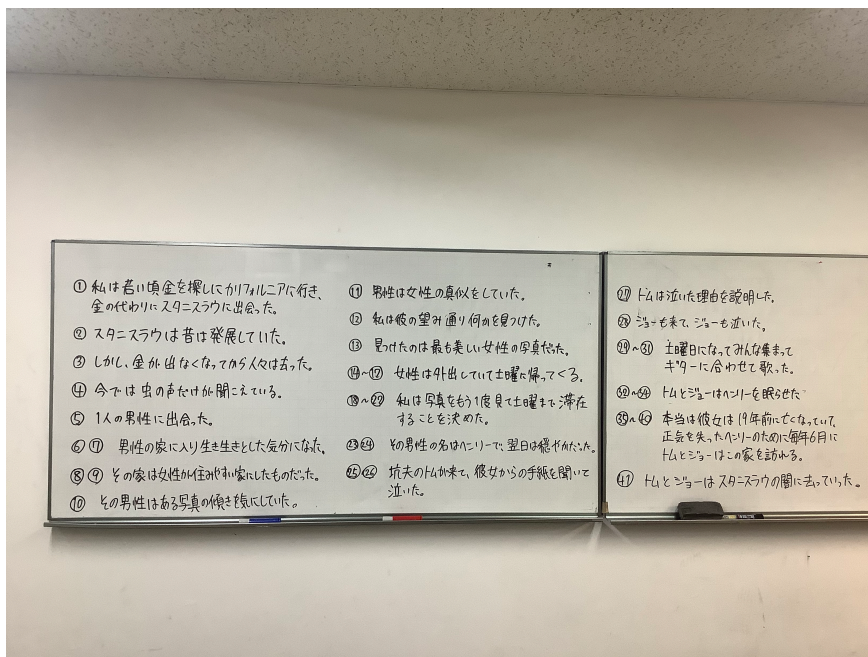 ① 私は若い頃金を探しにカリフォルニアに行き、
金の代わりにスタニスラウに出会った。
② スタニスラウは昔は発展していた。
③ しかし、金が出なくなってから人々は去った。
④ 今では虫の声だけが聞こえている。
⑤ 1人の男性に出会った。
⑥⑦ 男性の家に入り生き生きとした気分になった。
⑧⑨ その家は女性が住みやすい家にしたものだった。
⑩ その男性はある写真の傾きを気にしていた。
⑪ 男性は女性の真似をしていた。
⑫ 私は彼の望み通り何かを見つけた。
⑬ 見つけたのは最も美しい女性の写真だった。
⑭~⑰ 女性は外出していて土曜に帰ってくる。
⑱~㉒ 私は写真をもう1度見て土曜まで滞在
することを決めた。
㉓㉔ その男性の名はヘンリーで、翌日は穏やかだった。
㉕㉖ 坑夫のトムが来て、彼女からの手紙を聞いて
泣いた。
㉗ トムは泣いた理由を説明した。
㉘ ジョーも来て、ジョーも泣いた。
㉙~㉛ 土曜日になってみんな集まって
ギターに合わせて歌った。
㉜~㉞ トムとジョーはヘンリーを眠らせた
㉟~㊵ 本当は彼女は19年前に亡くなっていて、
正気を失ったヘンリーのために毎年6月に
トムとジョーはこの家を訪れる。
㊶ トムとジョーはスタニスラウの闇に去っていった。